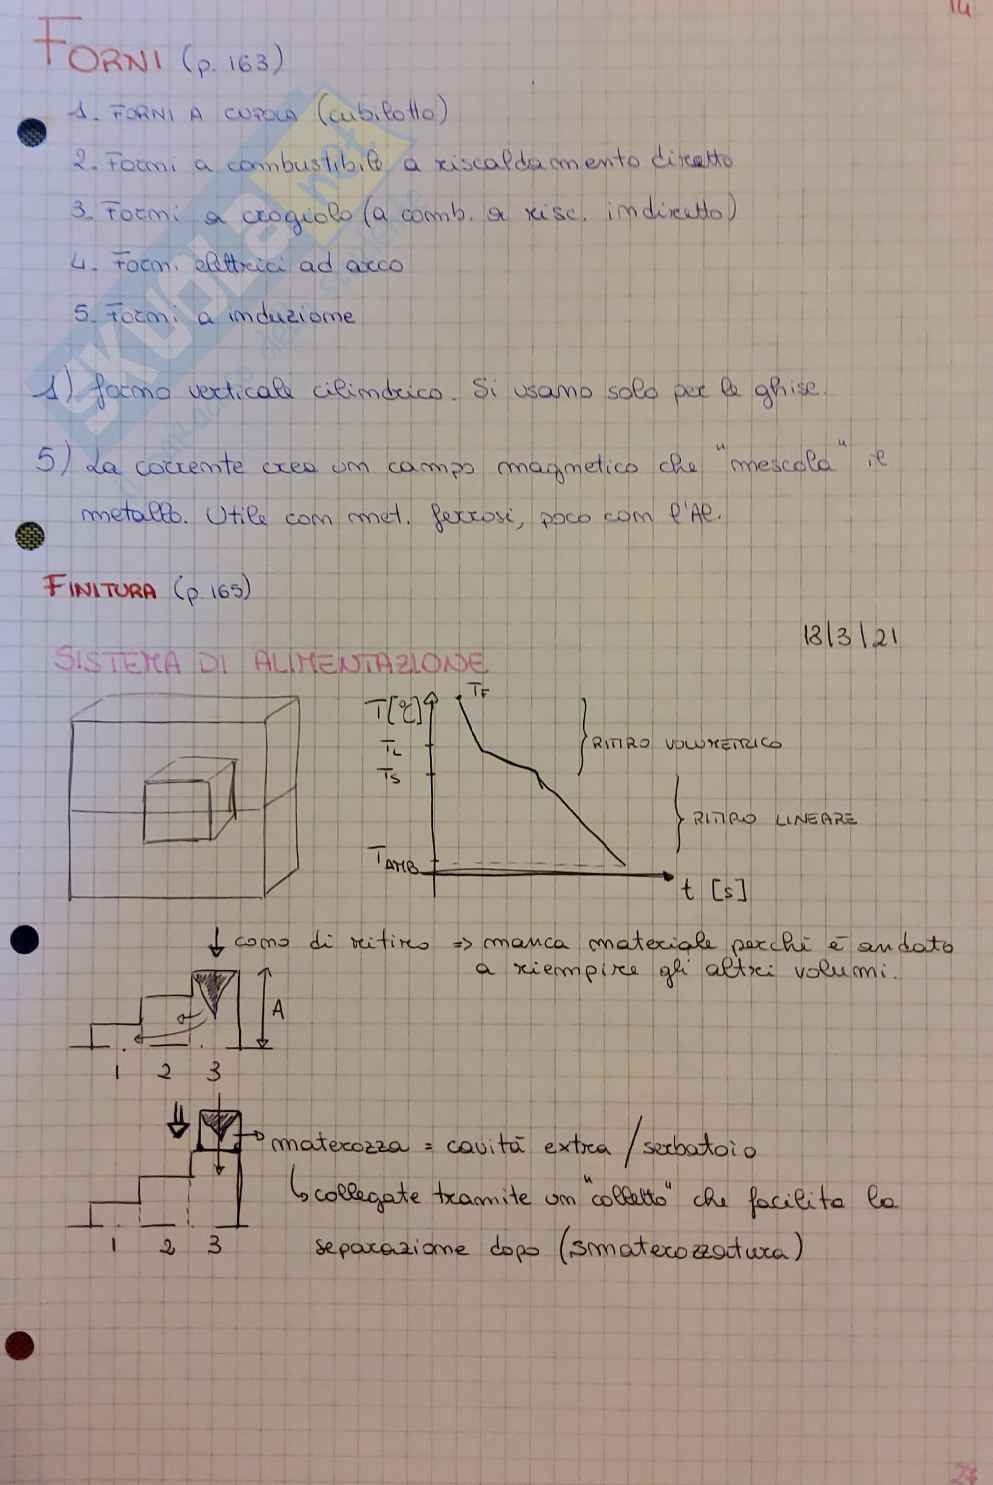 14
FORNI (p. 163)
1. FORNI A CUPOLA (cubilotto)
2. Forni a combustibile a riscaldamento diretto
3. Forni a crogiolo (a comb. a risc. indiretto)
4. Forni elettrici ad arco
5. Forni a induzione
1) forno verticale cilindrico. Si usano solo per le ghise.
5) La corrente crea un campo magnetico che "mescola" il
metallo. Utile con met. ferrosi, poco con l'Al.
FINITURA (p. 165)
18/3/21
SISTEMA DI ALIMENTAZIONE
T[°C] TF
TL
TS
RITIRO VOLUMETRICO
RITIRO LINEARE
TAMB
t [s]
cono di ritiro => manca materiale perché è andato
a riempire gli altri volumi.
A
1 2 3
materozza = cavità extra / serbatoio
collegate tramite un "colletto" che facilita la
1 2 3
separazione dopo (smaterozzatura)
27
SKUOLA.net